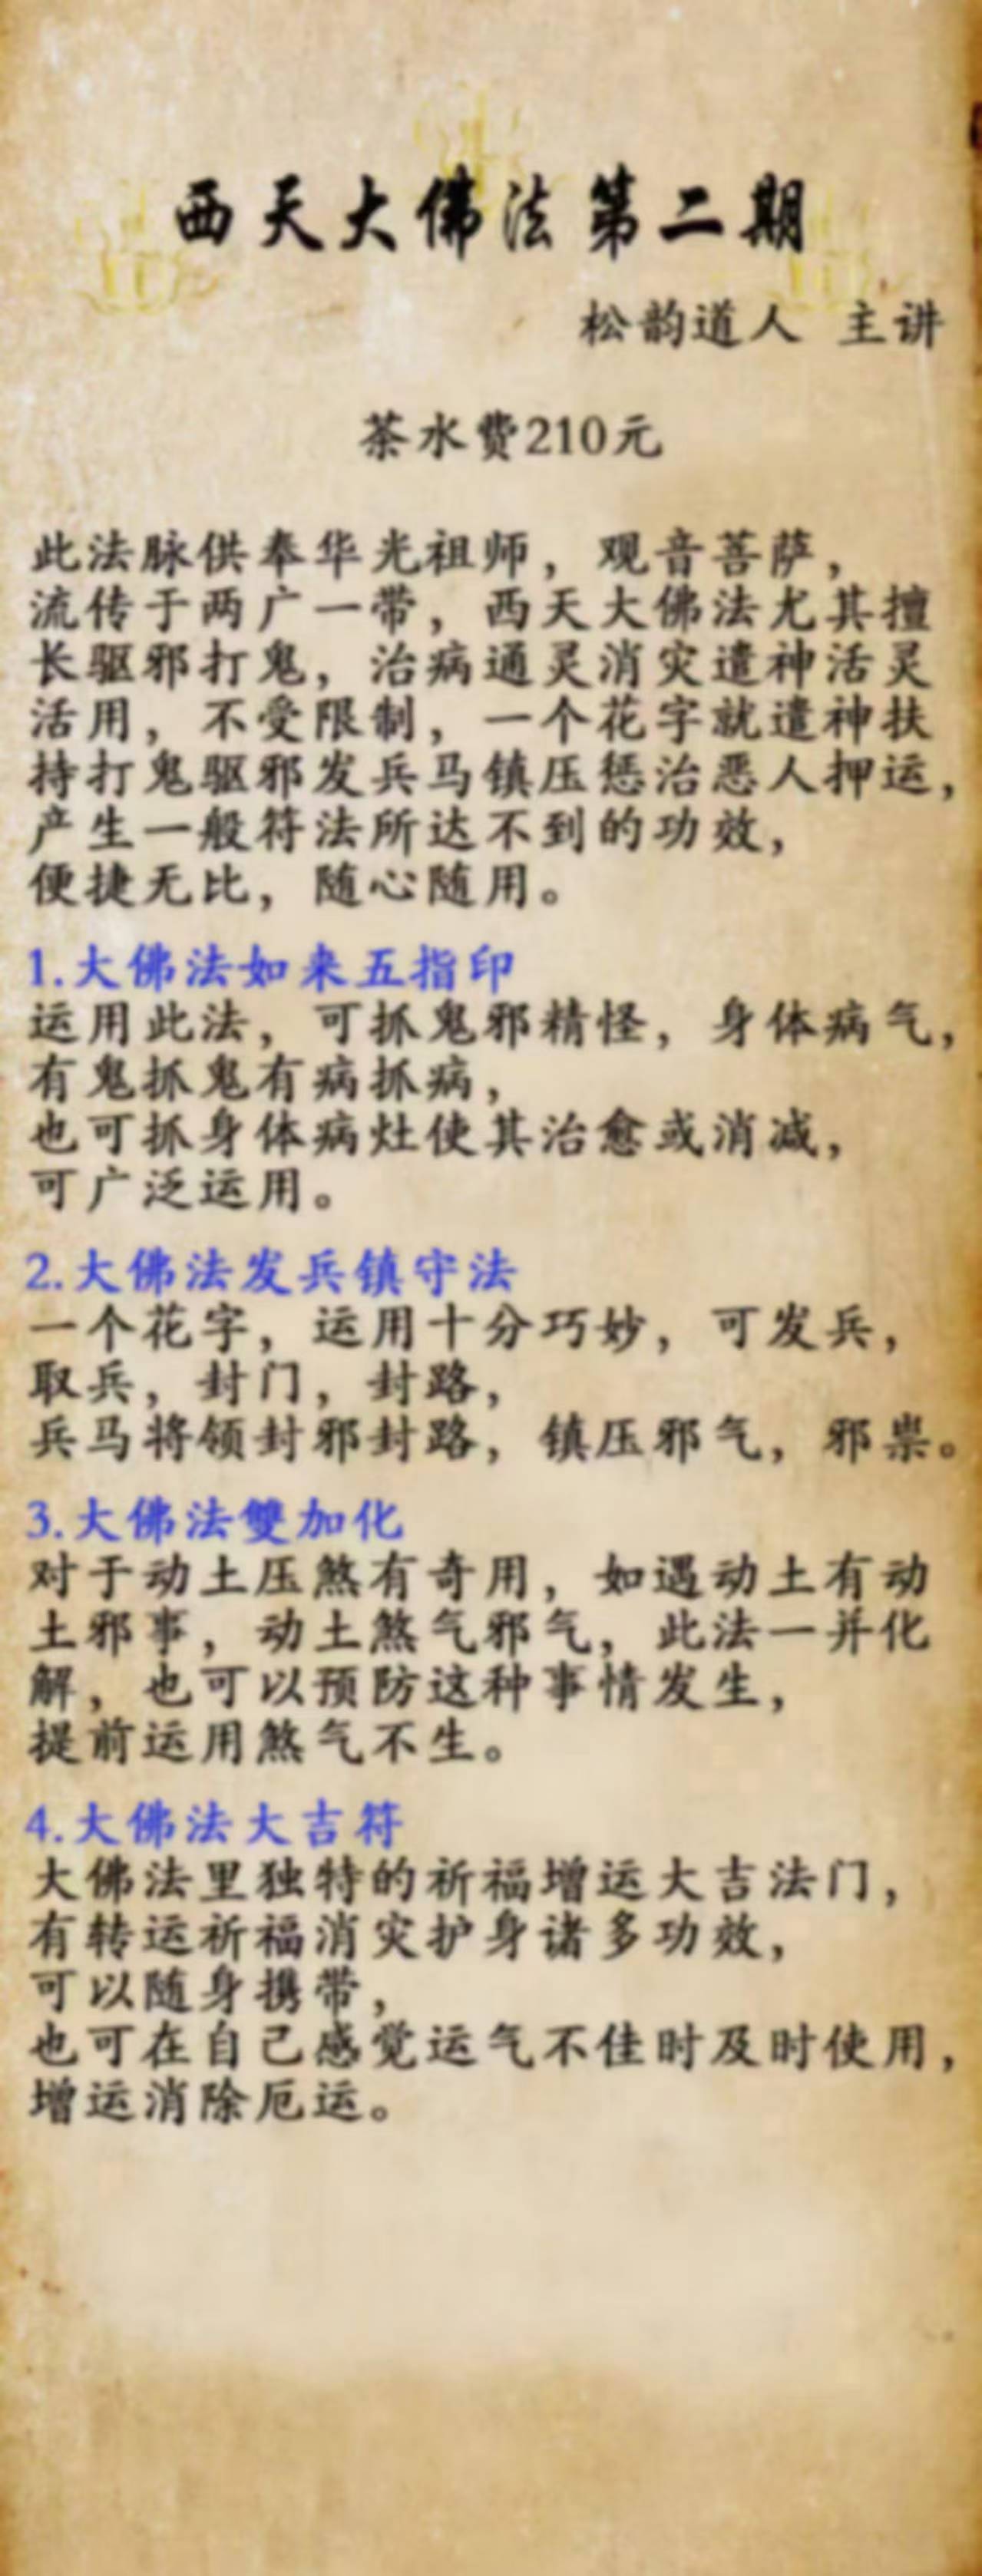 西天大佛法第二期
松韵道人 主讲
茶水费210元
此法脉供奉华光祖师，观音菩萨，
流传于两广一带，西天大佛法尤其擅
长驱邪打鬼，治病通灵消灾遣神活灵
活用，不受限制，一个花字就遣神扶
持打鬼驱邪发兵马镇压惩治恶人押运，
产生一般符法所达不到的功效，
便捷无比，随心随用。
1.大佛法如来五指印
运用此法，可抓鬼邪精怪，身体病气，
有鬼抓鬼有病抓病，
也可抓身体病灶使其治愈或消减，
可广泛运用。
2.大佛法发兵镇守法
一个花字，运用十分巧妙，可发兵，
取兵，封门，封路，
兵马将领封邪封路，镇压邪气，邪祟。
3.大佛法雙加化
对于动土压煞有奇用，如遇动土有动
土邪事，动土煞气邪气，此法一并化
解，也可以预防这种事情发生，
提前运用煞气不生。
4.大佛法大吉符
大佛法里独特的祈福增运大吉法门，
有转运祈福消灾护身诸多功效，
可以随身携带，
也可在自己感觉运气不佳时及时使用，
增运消除厄运。